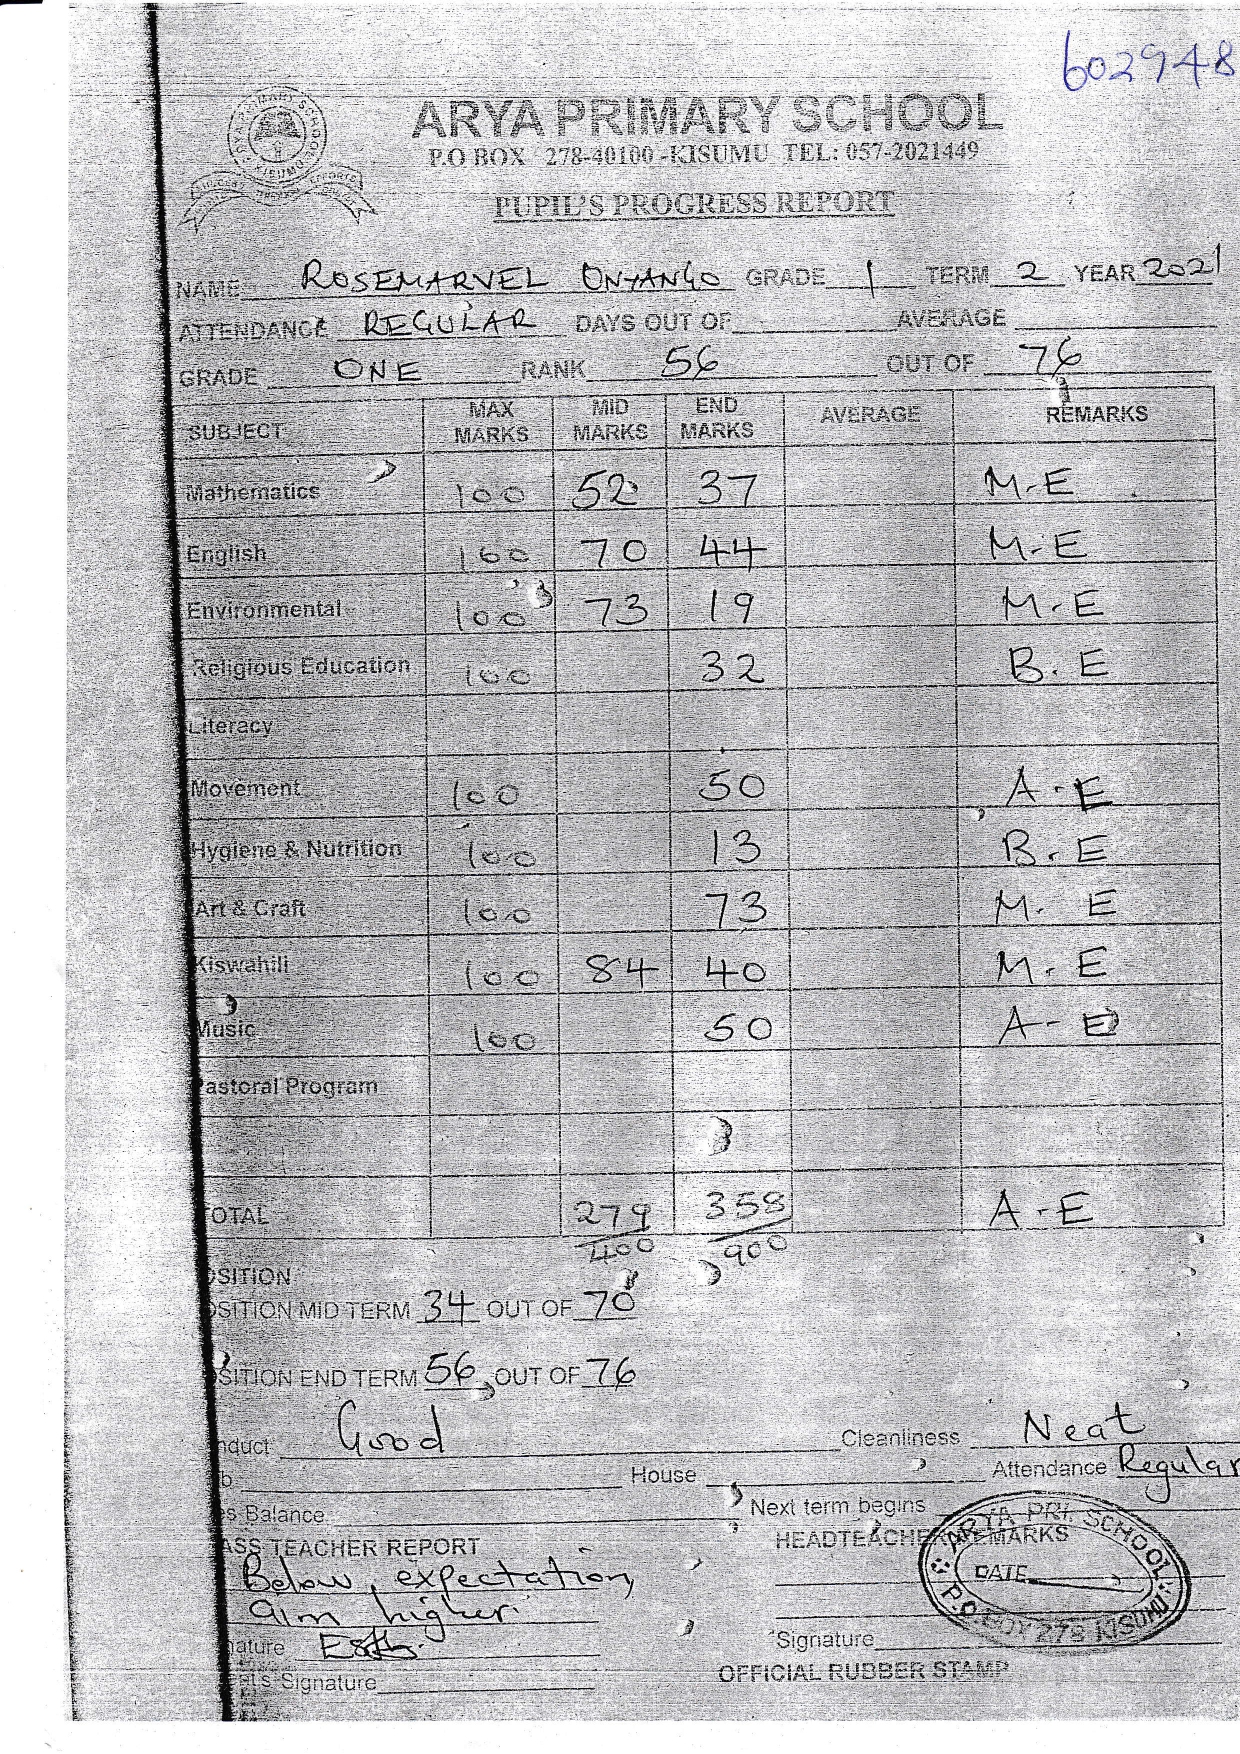 602948
ARYA PRIMARY SCHOOL
P.O BOX 278-40100 -KISUMU TEL: 057-2021449
PUPIL'S PROGRESS REPORT
NAME ROSEMARVEL ONYANGO GRADE 1 TERM 2 YEAR 2021
ATTENDANCE REGULAR DAYS OUT OF AVERAGE
GRADE ONE RANK 56 OUT OF 76
SUBJECT MAX MARKS MID MARKS END MARKS AVERAGE REMARKS
Mathematics 100 52 37 M-E
English 100 70 44 M-E
Environmental 100 73 19 M.E
Religious Education 100 32 B.E
Literacy
Movement 100 50 A-E
Hygiene & Nutrition 100 13 B.E
Art & Craft 100 73 M. E
Kiswahili 100 84 40 M.E
Music 100 50 A-E
Pastoral Program
TOTAL 279/400 358/900 A-E
OSITION
OSITION MID TERM 34 OUT OF 70
OSITION END TERM 56 OUT OF 76
nduct Good Cleanliness Neat
b House Attendance Regular
s Balance Next term begins
ASS TEACHER REPORT HEADTEACHER REMARKS
Below, expectation,
aim higher.
nature Signature
Signature OFFICIAL RUBBER STAMP
ARYA PRI. SCHOOL
DATE
P.O. BOX 278 KISUMU